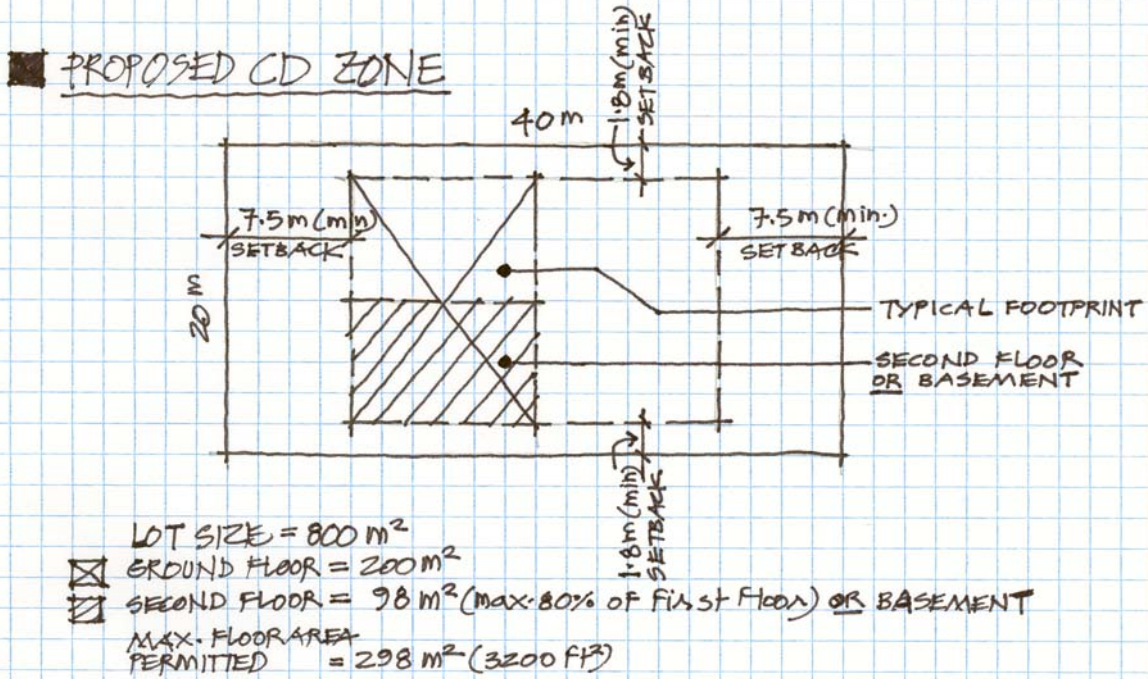 PROPOSED CD ZONE
1.8m (min)
SETBACK
40 m
7.5 m (min)
SETBACK
7.5 m (min.)
SETBACK
20 m
TYPICAL FOOTPRINT
SECOND FLOOR
OR BASEMENT
1.8m (min)
SETBACK
LOT SIZE = 800 m²
GROUND FLOOR = 200 m²
SECOND FLOOR = 98 m² (max. 80% of First Floor) OR BASEMENT
MAX. FLOOR AREA
PERMITTED = 298 m² (3200 ft²)